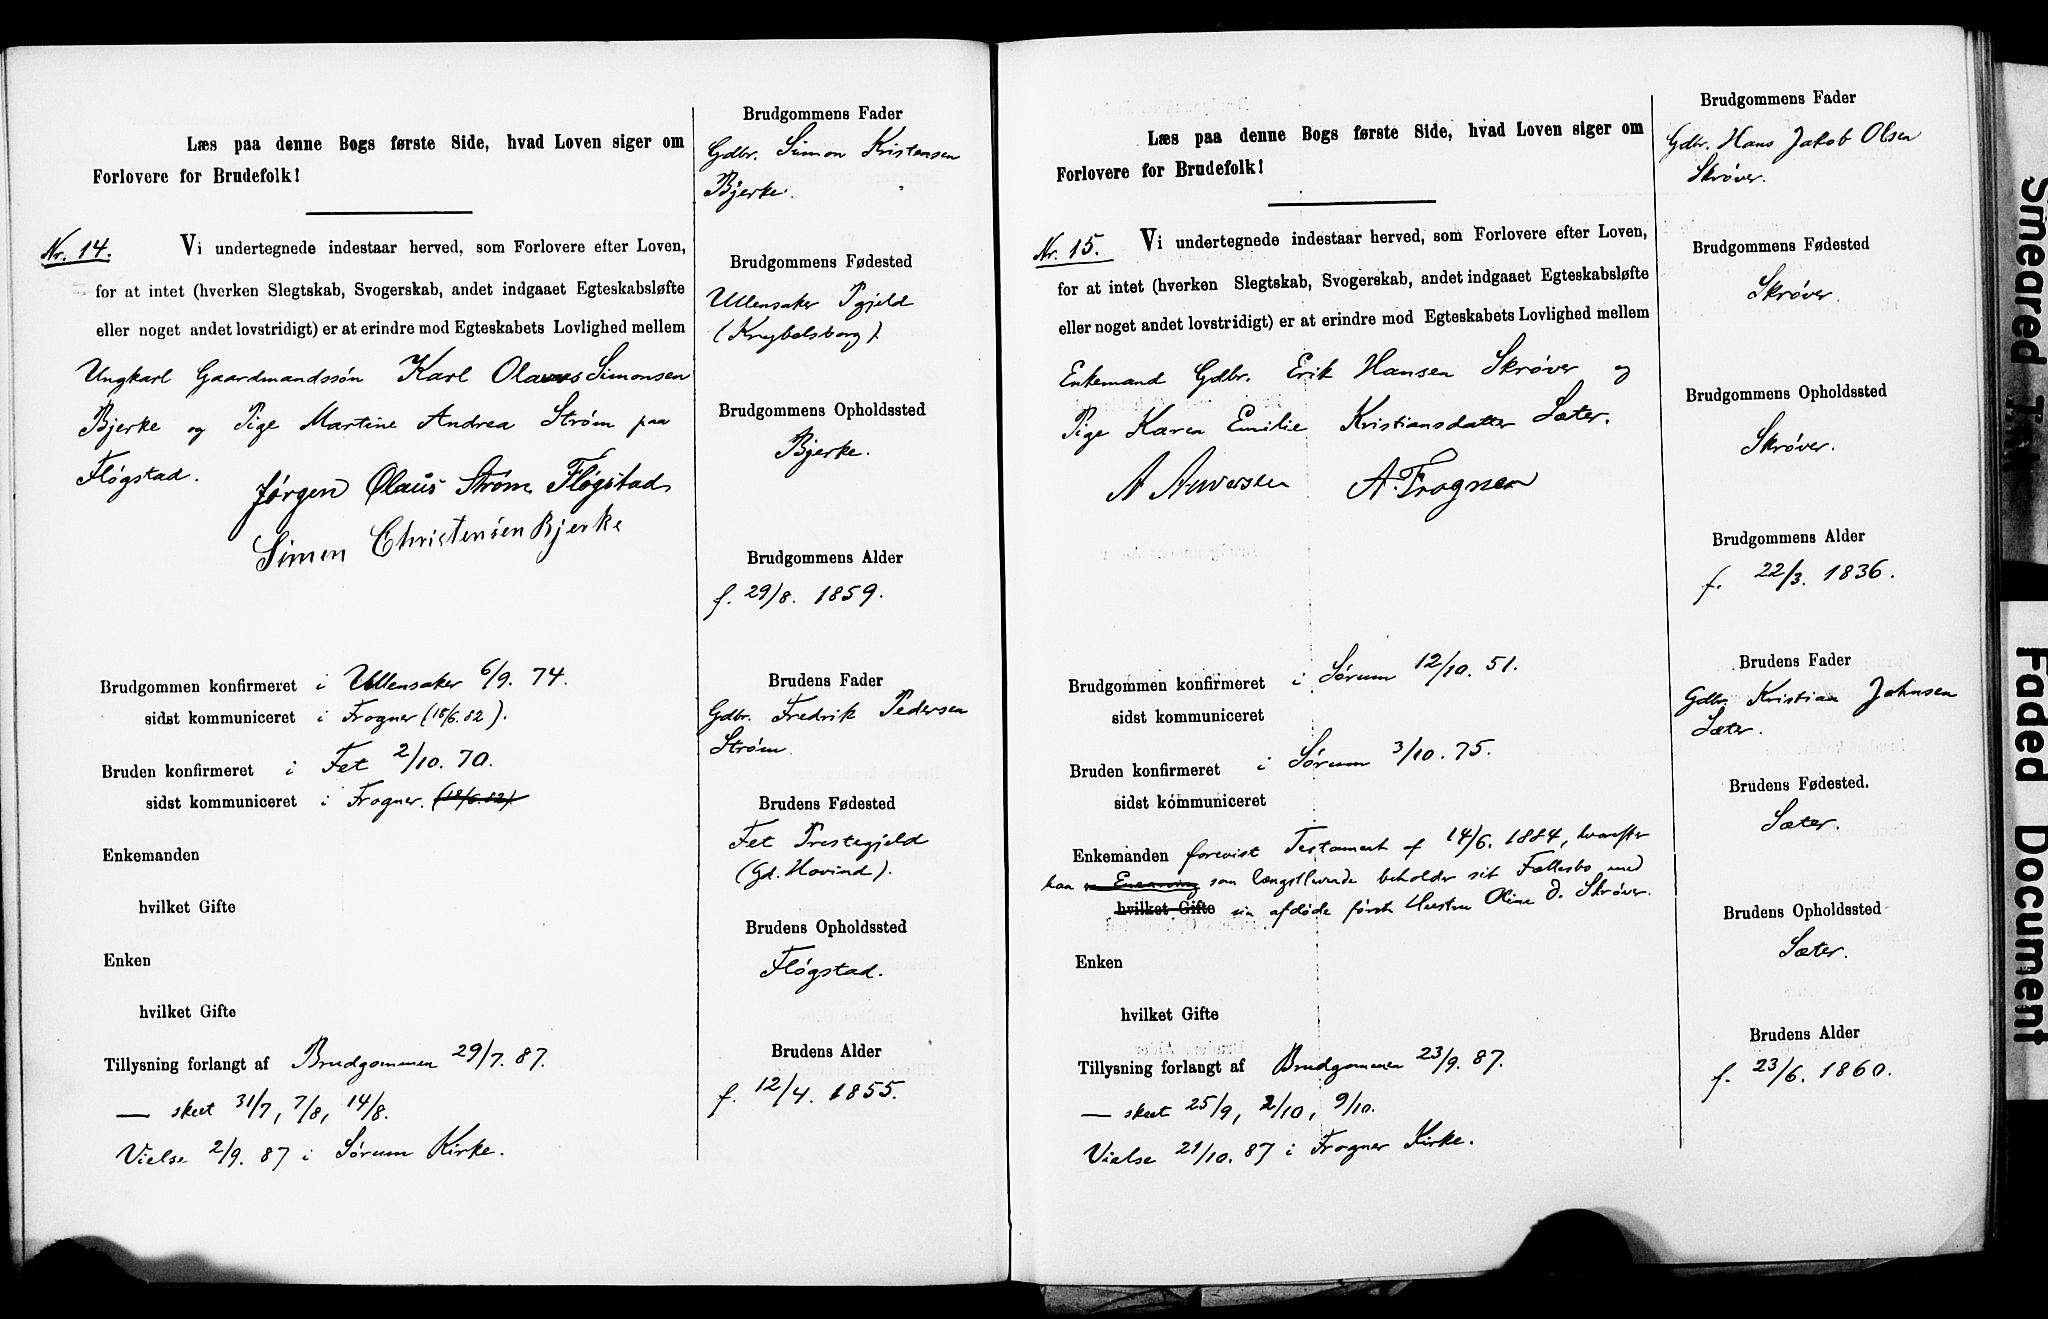 Læs paa denne Bogs første Side, hvad Loven siger om
Forlovere for Brudefolk!
Nr. 14. Vi undertegnede indestaar herved, som Forlovere efter Loven,
for at intet (hverken Slegtskab, Svogerskab, andet indgaaet Egteskabsløfte
eller noget andet lovstridigt) er at erindre mod Egteskabets Lovlighed mellem
Ungkarl Gaardmandssøn Karl Olaves Simonsen
Bjerke og Pige Martine Andrea Strøm paa
Fløgstad.
Jørgen Olaus Strøm Fløgstad
Simen Christensen Bjerke
Brudgommen konfirmeret i Ullensaker 6/9. 74.
sidst kommuniceret i Frogner (18/6. 82).
Bruden konfirmeret i Fet 2/10. 70.
sidst kommuniceret i Frogner. (18/6. 82)
Enkemanden
hvilket Gifte
Enken
hvilket Gifte
Tillysning forlangt af Brudgommen 29/7. 87.
— skeet 31/7, 7/8, 14/8.
Vielse 2/9. 87 i Sørum Kirke.
Brudgommens Fader
Gdbr. Simon Kristensen
Bjerke.
Brudgommens Fødested
Ullensaker Pgjeld
(Krybelsborg).
Brudgommens Opholdssted
Bjerke.
Brudgommens Alder
f. 29/8. 1859.
Brudens Fader
Gdbr. Fredrik Pedersen
Strøm.
Brudens Fødested
Fet Prestegjeld
(Gd. Hovind).
Brudens Opholdssted
Fløgstad.
Brudens Alder
f. 12/4. 1855.
Læs paa denne Bogs første Side, hvad Loven siger om
Forlovere for Brudefolk!
Nr. 15. Vi undertegnede indestaar herved, som Forlovere efter Loven,
for at intet (hverken Slegtskab, Svogerskab, andet indgaaet Egteskabsløfte
eller noget andet lovstridigt) er at erindre mod Egteskabets Lovlighed mellem
Enkemand Gdbr. Erik Hansen Skrøver og
Pige Karen Emilie Kristiansdatter Sæter.
A. Frognen
Brudgommen konfirmeret i Sørum 12/10. 51.
sidst kommuniceret
Bruden konfirmeret i Sørum 3/10. 75.
sidst kommuniceret
Enkemanden forevist Testament af 14/6. 1884, hvorefter
han som længstlevende beholder sit Fællesbo med
hvilket Gifte sin afdøde første Hustru Oline D. Skrøver.
Enken
hvilket Gifte
Tillysning forlangt af Brudgommen 23/9. 87.
— skeet 25/9, 2/10, 9/10.
Vielse 21/10. 87 i Frogner Kirke.
Brudgommens Fader
Gdbr. Hans Jakob Olsen
Skrøver.
Brudgommens Fødested
Skrøver.
Brudgommens Opholdssted
Skrøver.
Brudgommens Alder
f. 22/3. 1836.
Brudens Fader
Gdbr. Kristian Johnsen
Sæter.
Brudens Fødested.
Sæter.
Brudens Opholdssted
Sæter.
Brudens Alder
f. 23/6. 1860.
Smeared Ink
Faded Document